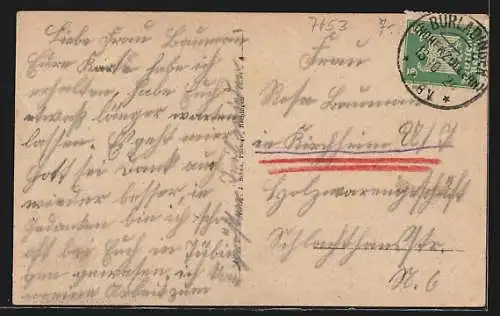 Liebe Frau Baumann
Eure Karte habe ich
erhalten, habe Euch
etwas länger warten
lassen. Es geht mir
Gott sei Dank auch
wieder besser in
Gedanken bin ich schon
oft bei Euch in Tübin
gen gewesen, ich
meine Arbeit zum
7453
BURLADINGEN
Frau
Rosa Baumann
in Kirchheim U/T
Holzwarengeschäft
Schlachthausstr.
N. 6